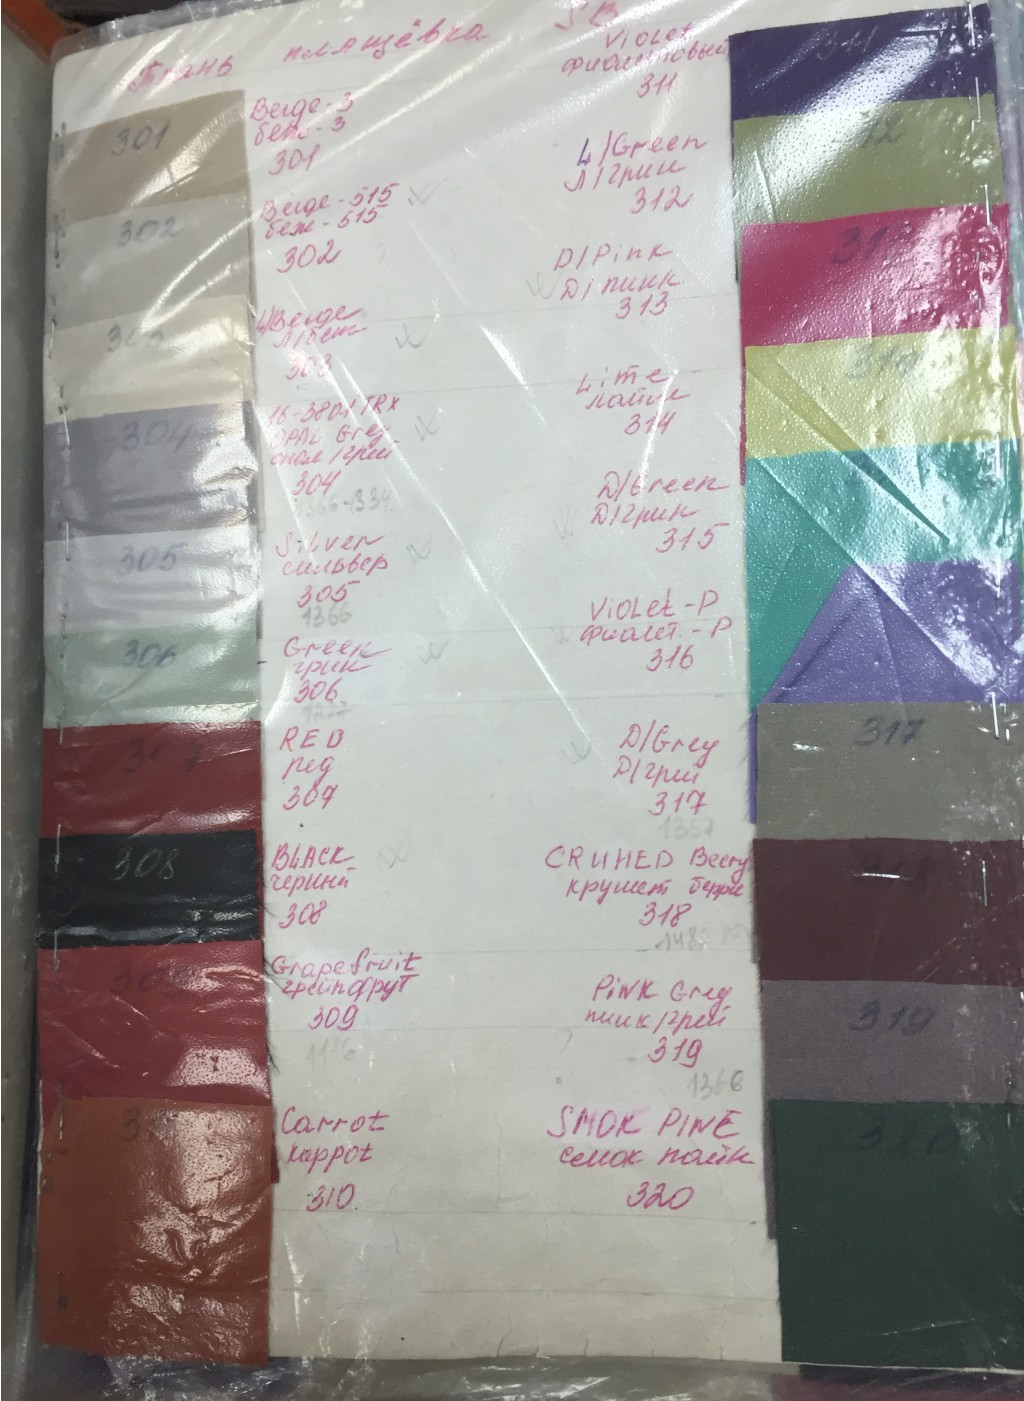 Ткань плащёвка SB
301
Beige-3
беж-3
301
302
Beige-515
беж-515
302
303
L/Beige
Л/беж
303
304
16-3801 TRX
OPAL Grey
опал/грей
304
1366-1334
305
Silver
сильвер
305
1366
306
Green
грин
306
307
RED
ред
307
308
BLACK
черный
308
309
Grapefruit
грейпфрут
309
Carrot
каррот
310
311
Violet
фиолетовый
311
312
L/Green
Л/грин
312
313
D/Pink
D/пинк
313
314
Lime
лайм
314
D/Green
D/грин
315
Violet-P
фиолет.-P
316
317
D/Grey
D/грей
317
1357
318
CRUHED Berry
крушет берри
318
319
PINK Grey
пинк/грей
319
1366
320
SMOK PINE
смок пайн
320